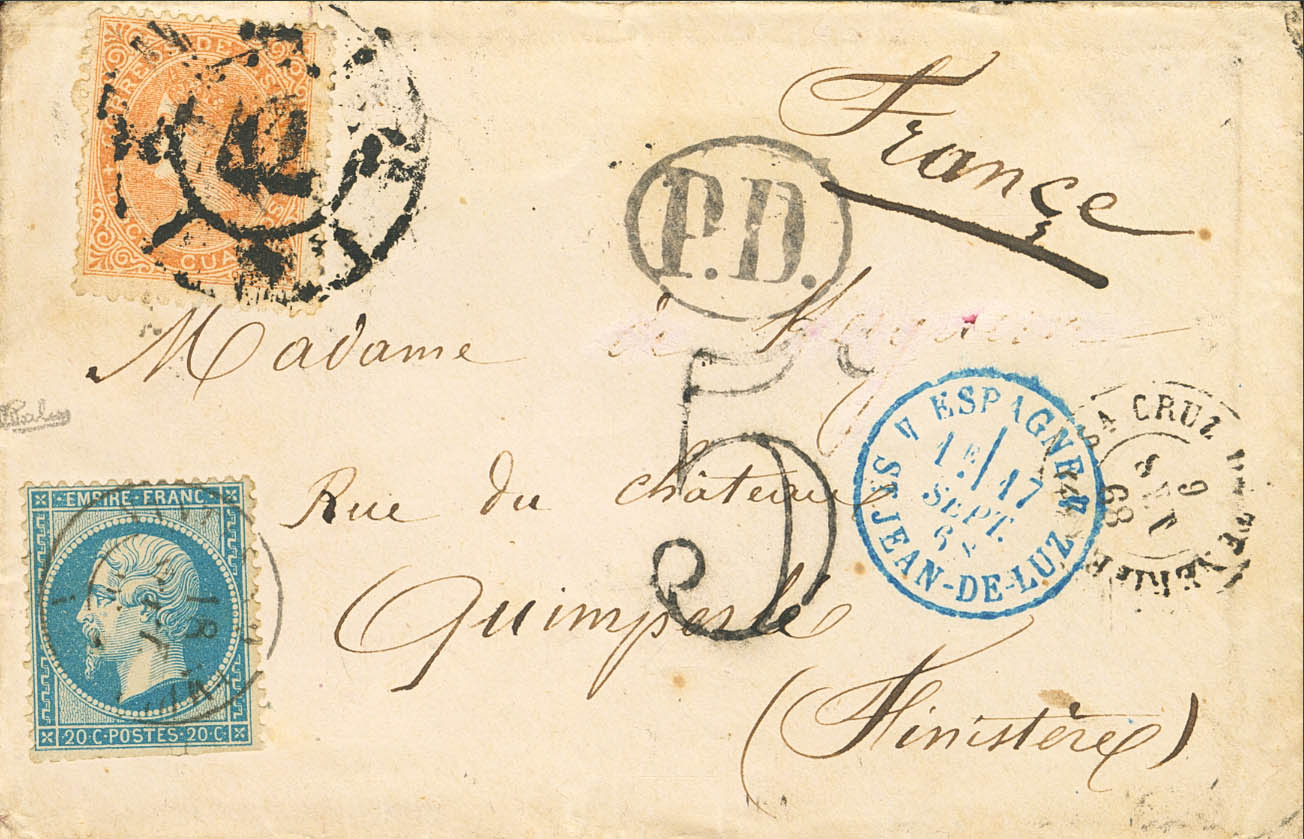 France
P.D.
Madame de
5
ESPAGNE
1E 17
SEPT.
68
ST JEAN-DE-LUZ
A CRUZ DE TENERIFE
9
68
Rue du château
Quimperlé
(Finistère)
EMPIRE-FRANC
18
20·C·POSTES·20·C